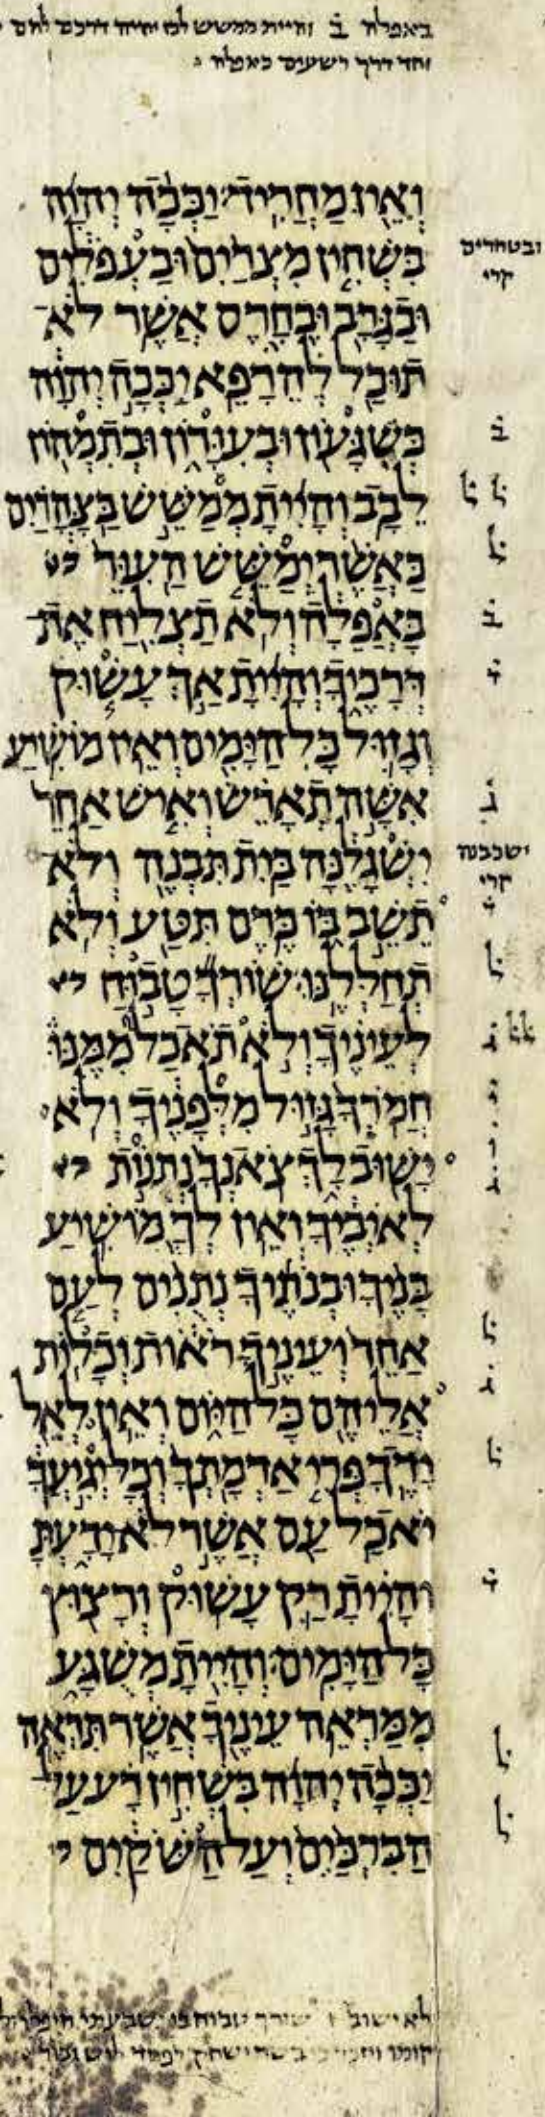 באפלה ב̇ והיית ממשש למו יהיה דרכם להם
וחד דרך רשעים כאפלה
וְאֵין מַחֲרִיד׃ יַכְּכָה יְהוָה
בִּשְׁחִין מִצְרַיִם וּבַעְפֹלִים
ובטחרים
קרי
וּבַגָּרָב וּבֶחָרֶס אֲשֶׁר לֹא
תוּכַל לְהֵרָפֵא׃ יַכְּכָה יְהוָה
בְּשִׁגָּעוֹן וּבְעִוָּרוֹן וּבְתִמְהוֹן
ב̇
לֵבָב׃ וְהָיִיתָ מְמַשֵּׁשׁ בַּצָּהֳרַיִם
ל̇ ל̇
כַּאֲשֶׁר יְמַשֵּׁשׁ הַעִוֵּר
ל̇
בָּאֲפֵלָה וְלֹא תַצְלִיחַ אֶת
ב̇
דְּרָכֶיךָ וְהָיִיתָ אַךְ עָשׁוּק
ו̇
וְגָזוּל כָּל הַיָּמִים וְאֵין מוֹשִׁיעַ׃
אִשָּׁה תְאָרֵשׂ וְאִישׁ אַחֵר
ג̇
יִשְׁגָּלֶנָּה בַּיִת תִּבְנֶה וְלֹא
ישכבנה
קרי
תֵשֵׁב בּוֹ כֶּרֶם תִּטַּע וְלֹא
תְחַלְּלֶנּוּ׃ שׁוֹרְךָ טָבוּחַ
ל̇
לְעֵינֶיךָ וְלֹא תֹאכַל מִמֶּנּוּ
חֲמֹרְךָ גָּזוּל מִלְּפָנֶיךָ וְלֹא
יָשׁוּב לָךְ צֹאנְךָ נְתֻנוֹת
לְאֹיְבֶיךָ וְאֵין לְךָ מוֹשִׁיעַ׃
בָּנֶיךָ וּבְנֹתֶיךָ נְתֻנִים לְעַם
אַחֵר וְעֵינֶיךָ רֹאוֹת וְכָלוֹת
ל̇
אֲלֵיהֶם כָּל הַיּוֹם וְאֵין לְאֵל
ג̇
יָדֶךָ׃ פְּרִי אַדְמָתְךָ וְכָל יְגִיעֲךָ
ל̇
יֹאכַל עַם אֲשֶׁר לֹא יָדָעְתָּ
וְהָיִיתָ רַק עָשׁוּק וְרָצוּץ
ו̇
כָּל הַיָּמִים׃ וְהָיִיתָ מְשֻׁגָּע
מִמַּרְאֵה עֵינֶיךָ אֲשֶׁר תִּרְאֶה׃
יַכְּכָה יְהוָה בִּשְׁחִין רָע עַל
ל̇
הַבִּרְכַּיִם וְעַל הַשֹּׁקַיִם
ל̇
לא ישוב ו̇ שורך טבוח